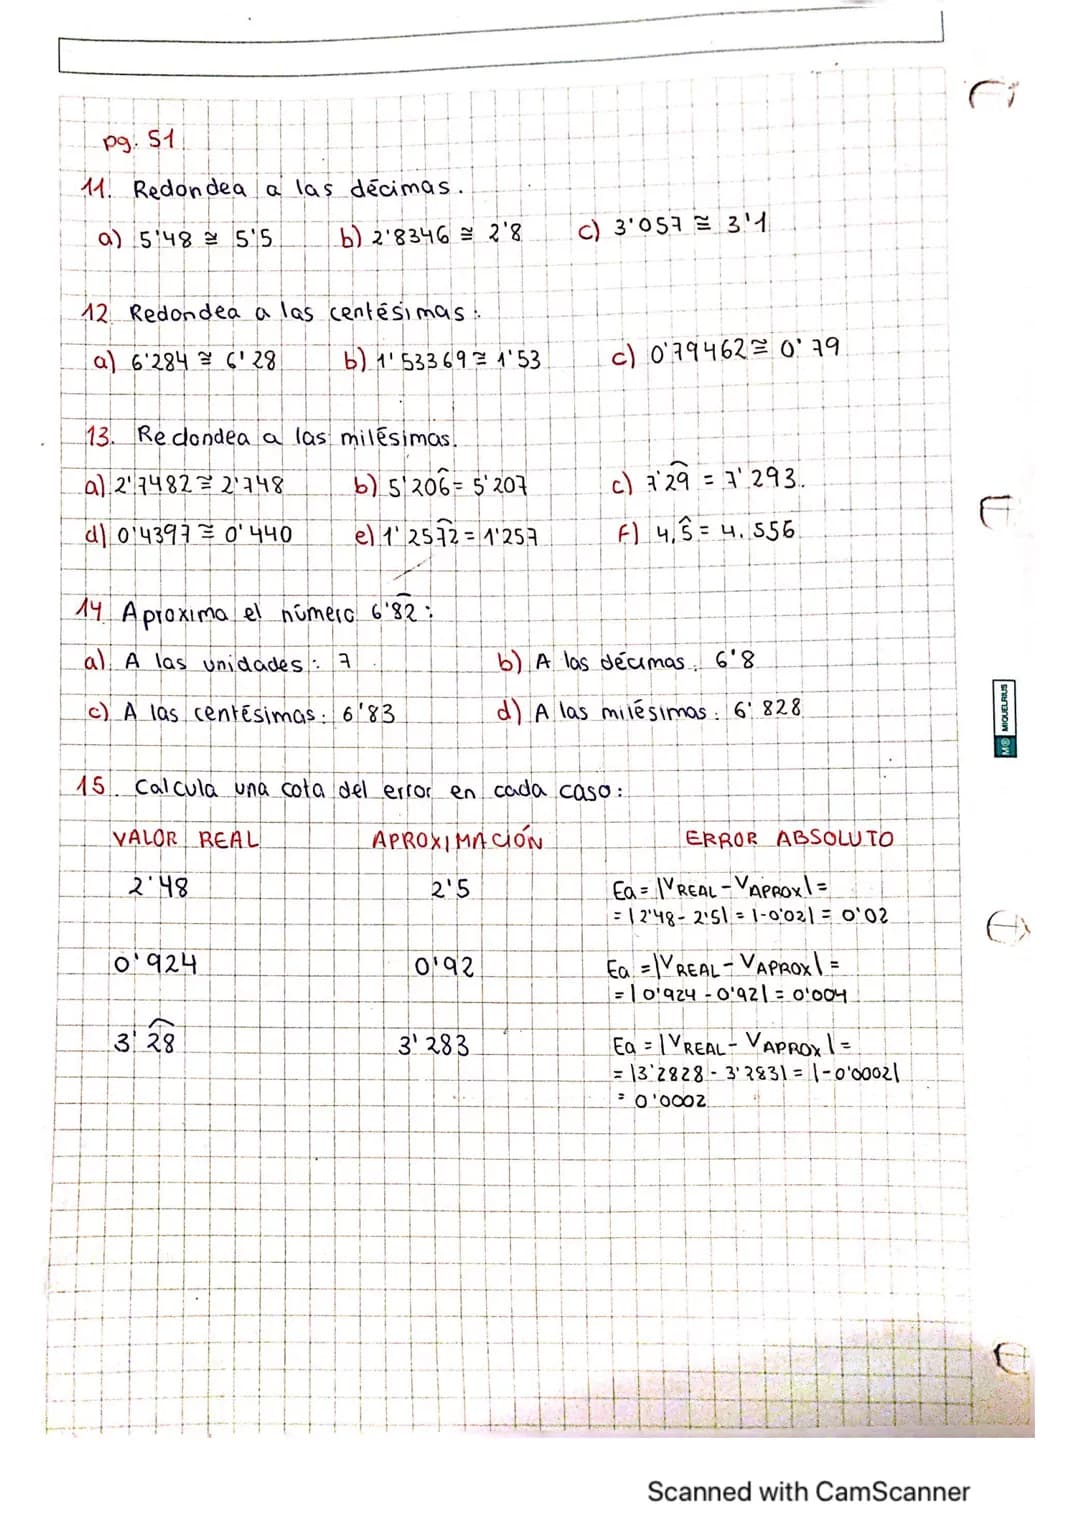 pg. 51
11. Redondea a las décimas.
a) 5'48 ≅ 5'5 b) 2'8346 ≅ 2'8 c) 3'057 ≅ 3'1
12. Redondea a las centésimas:
a) 6'284 ≅ 6'28 b) 1'53369 ≅ 1'53 c) 0'79462 ≅ 0'79
13. Redondea a las milésimas.
a) 2'7482 ≅ 2'748 b) 5'206̂ = 5'207 c) 7'2͡9 = 7'293.
d) 0'4397 ≅ 0'440 e) 1'257͡2 = 1'257 f) 4,5̂ = 4.556
14. Aproxima el número 6'8͡2:
a) A las unidades: 7 b) A las décimas: 6'8
c) A las centésimas: 6'83 d) A las milésimas: 6'828
15. Calcula una cota del error en cada caso:
VALOR REAL APROXIMACIÓN ERROR ABSOLUTO
2'48 2'5 Ea = |VREAL - VAPROX| =
= |2'48 - 2'5| = |-0'02| = 0'02
0'924 0'92 Ea = |VREAL - VAPROX| =
= |0'924 - 0'92| = 0'004
3'2͡8 3'283 Ea = |VREAL - VAPROX| =
= |3'2828 - 3'283| = |-0'0002|
= 0'0002
MIQUELRIUS
Scanned with CamScanner